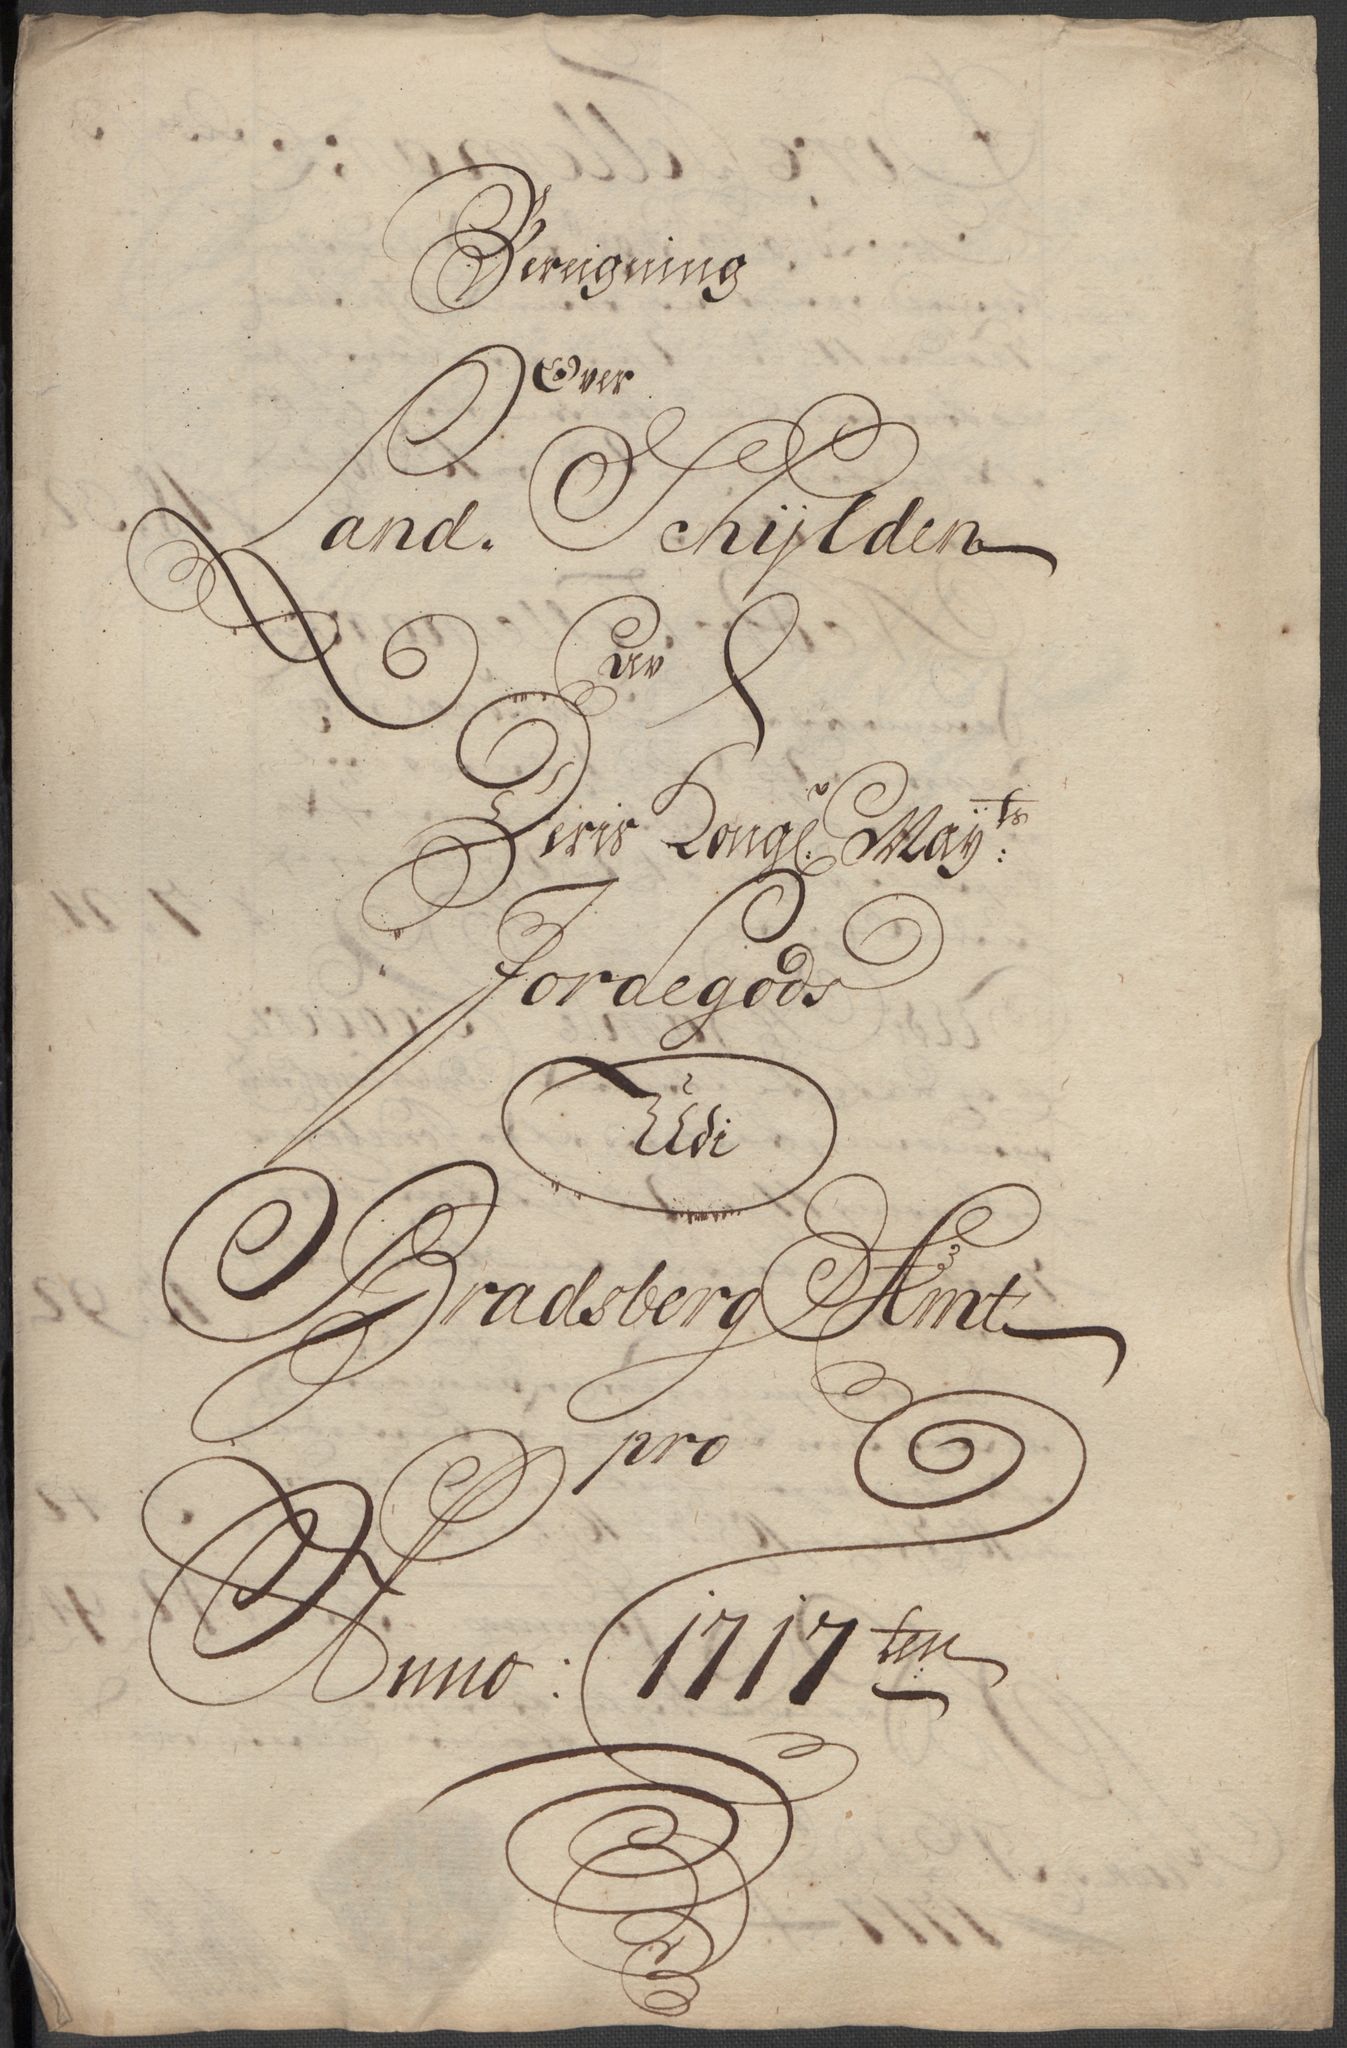 Beregning
Over
Land. Schÿlden
av
Deris Kongl. Maÿts:
Jordegods
Udi
Bradsberg Amt
pro
Anno: 1717ten